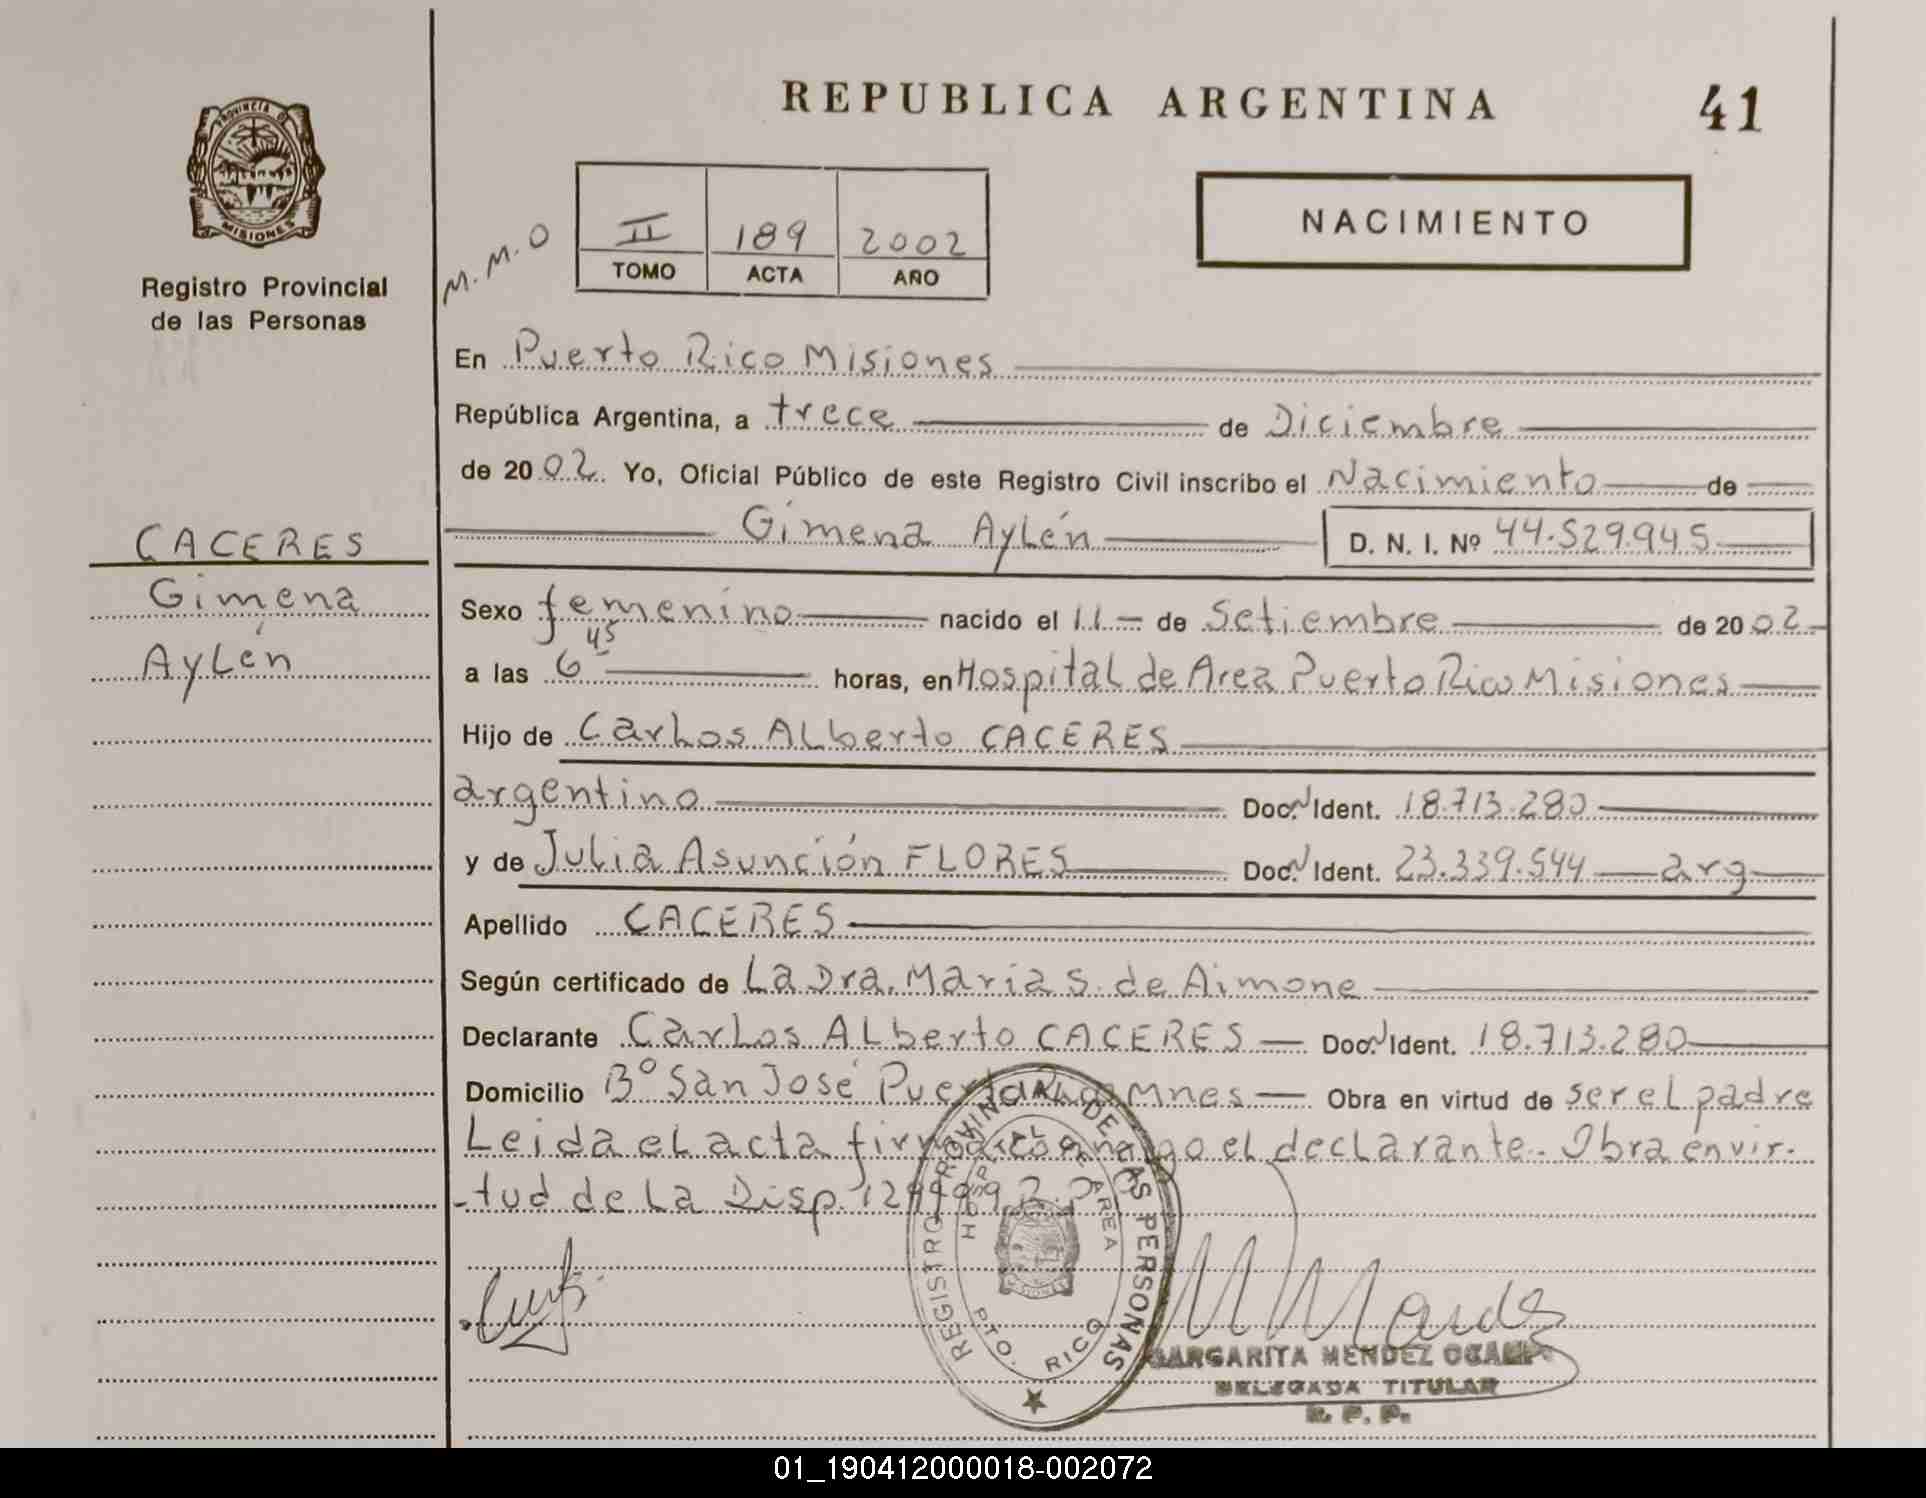 REPUBLICA ARGENTINA
41
PROVINCIA DE
MISIONES
Registro Provincial
de las Personas
M. M. O
II 189 2002
TOMO ACTA AÑO
NACIMIENTO
En Puerto Rico Misiones
República Argentina, a trece de Diciembre
de 2002. Yo, Oficial Público de este Registro Civil inscribo el Nacimiento de
Gimena Aylén D. N. I. Nº 44.529.945
CACERES
Gimena
Aylén
Sexo femenino nacido el 11 de Setiembre de 2002
a las 6 45 horas, en Hospital de Area Puerto Rico Misiones
Hijo de Carlos Alberto CACERES
argentino Doc. N Ident. 18.713.280
y de Julia Asunción FLORES Doc. N Ident. 23.339.544 arg
Apellido CACERES
Según certificado de La Dra. Maria S. de Aimone
Declarante Carlos Alberto CACERES Doc. N Ident. 18.713.280
Domicilio Bº San José Puerto Rico Mnes Obra en virtud de ser el padre
Leida el acta firma conmigo el declarante. Obra en vir-
-tud de la Disp.
REGISTRO PROVINCIAL DE LAS PERSONAS
HOSPITAL DE AREA
PTO. RICO
MARGARITA MENDEZ OCAMPO
DELEGADA TITULAR
R. P. P.
01_190412000018-002072